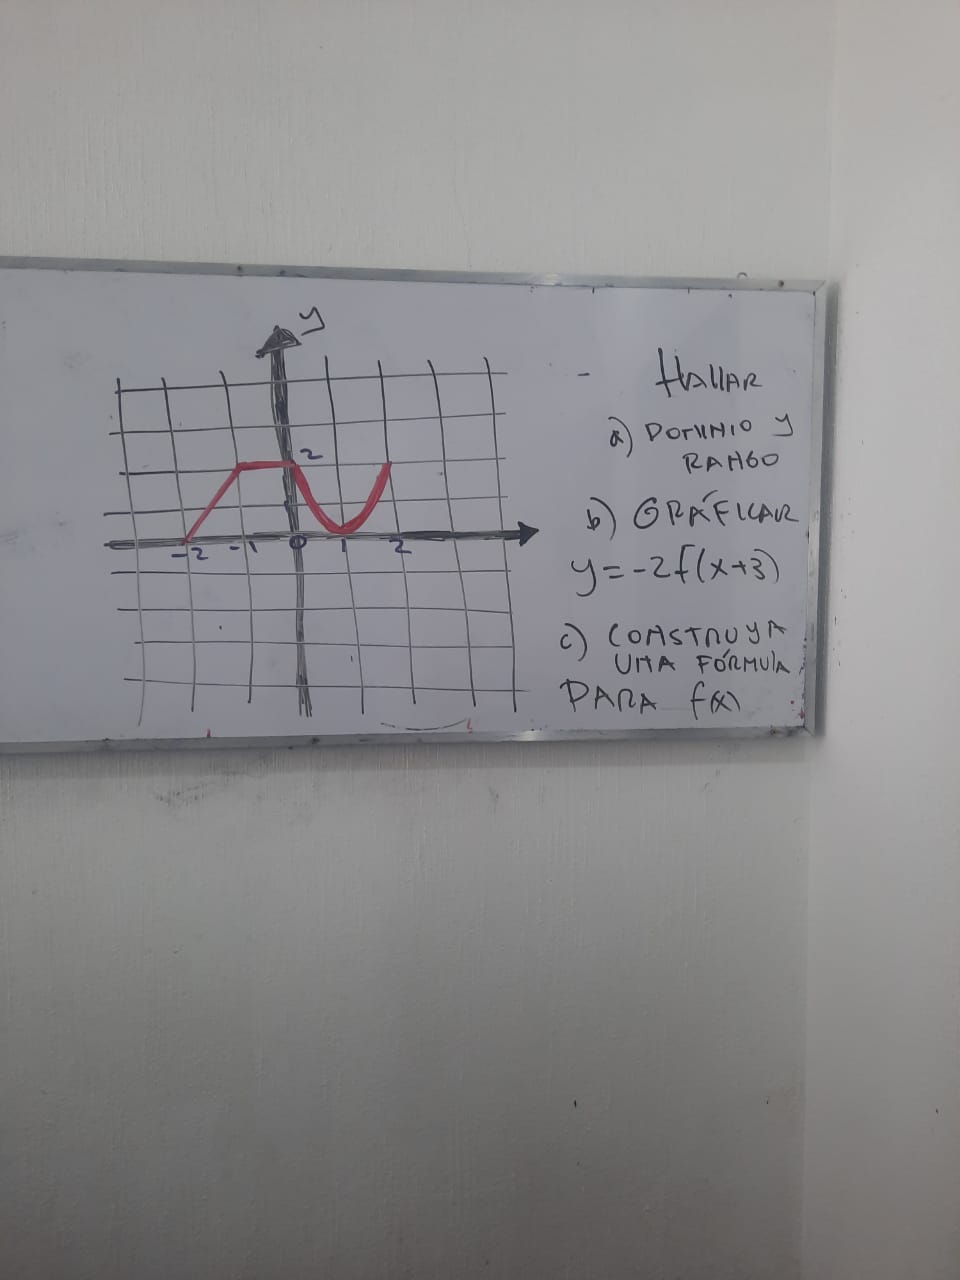 y
2
-2 -1 0 1 2
- HALLAR
a) DOMINIO Y
RANGO
b) GRÁFICAR
y=-2f(x+3)
c) CONSTRUYA
UNA FÓRMULA
PARA f(x)